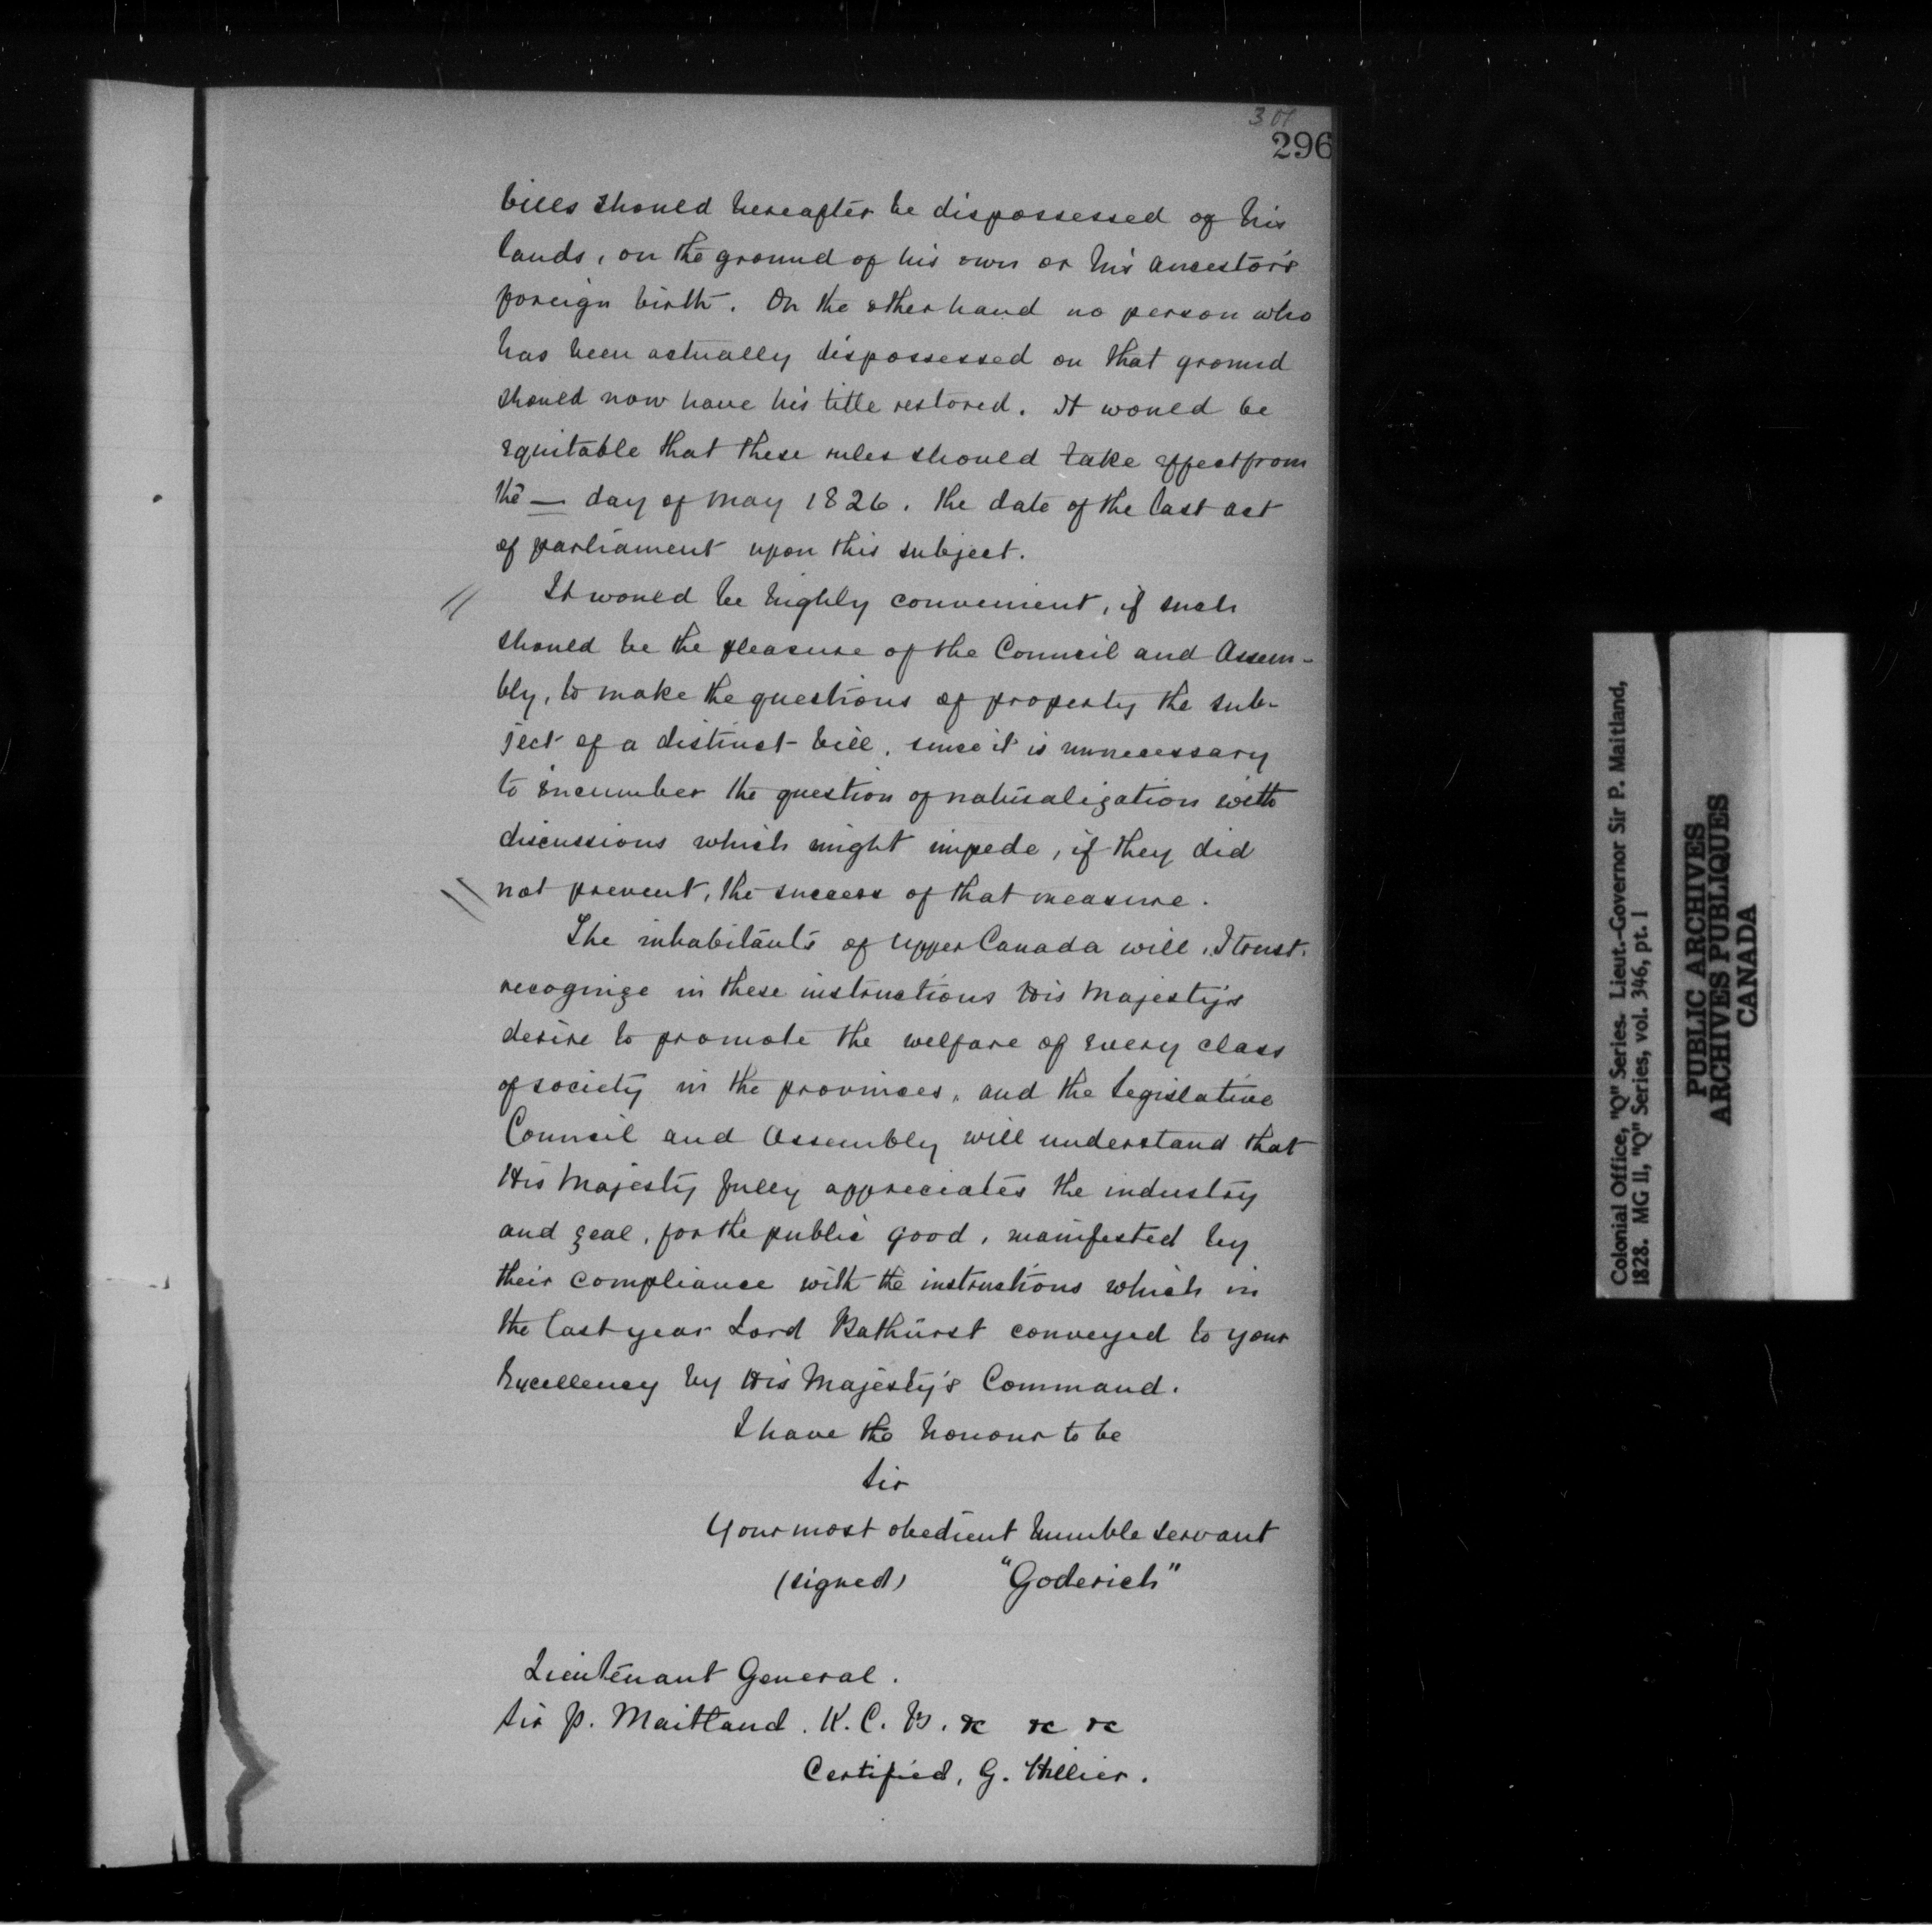 301
296
bills should hereafter be dispossessed of his
lands, on the ground of his own or his ancestor's
foreign birth. On the other hand no person who
has been actually dispossessed on that ground
should now have his title restored. It would be
equitable that these rules should take effect from
the — day of May 1826. the date of the last act
of parliament upon this subject.
It would be highly convenient, if such
should be the pleasure of the Council and Assem-
bly, to make the questions of property the sub-
ject of a distinct bill, since it is unnecessary
to encumber the question of naturalization with
discussions which might impede, if they did
not prevent, the success of that measure.
The inhabitants of Upper Canada will, I trust.
recognize in these instructions His Majesty's
desire to promote the welfare of every class
of society in the provinces, and the Legislative
Council and Assembly will understand that
His Majesty fully appreciates the industry
and zeal, for the public good, manifested by
their compliance with the instructions which in
the last year Lord Bathurst conveyed to your
Excellency by His Majesty's Command.
I have the honour to be
Sir
Your most obedient humble servant
(signed) "Goderich"
Lieutenant General.
Sir P. Maitland. K. C. B. &c &c &c
Certified, G. Hillier.
Colonial Office, "Q" Series. Lieut.-Governor Sir P. Maitland,
1828. MG 11, "Q" Series, vol. 346, pt. 1
PUBLIC ARCHIVES
ARCHIVES PUBLIQUES
CANADA